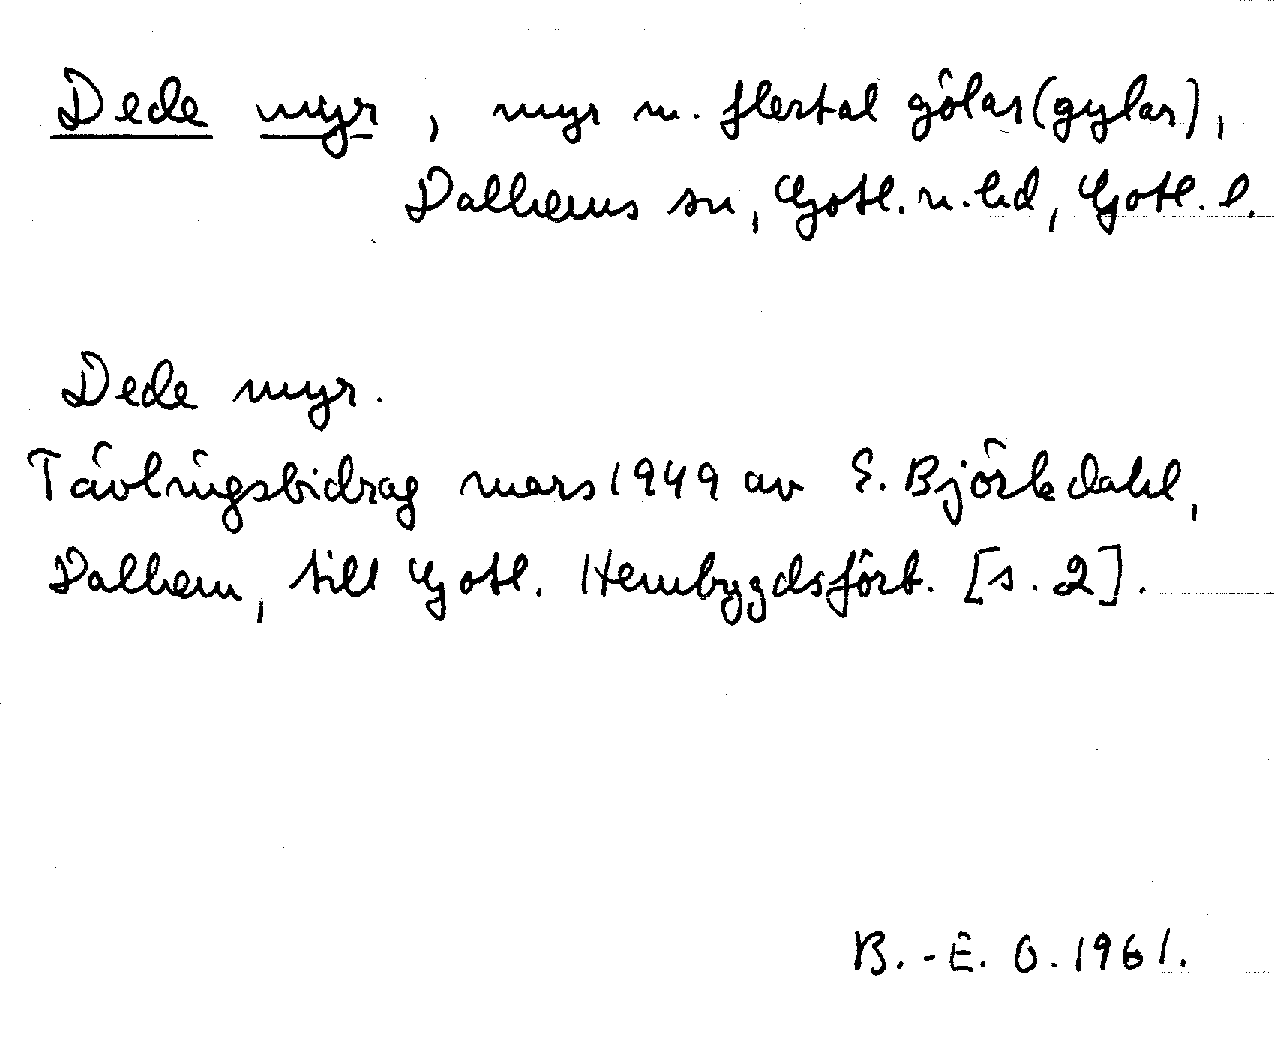 Dede myr, myr m. flertal gölar (gylar),
Dalhems sn, Gotl. n. hd, Gotl. l.
Dede myr.
Tävlingsbidrag mars 1949 av E. Björkdahl,
Dalhem, till Gotl. Hembygdsförb. [s. 2].
B.-E. O. 1961.